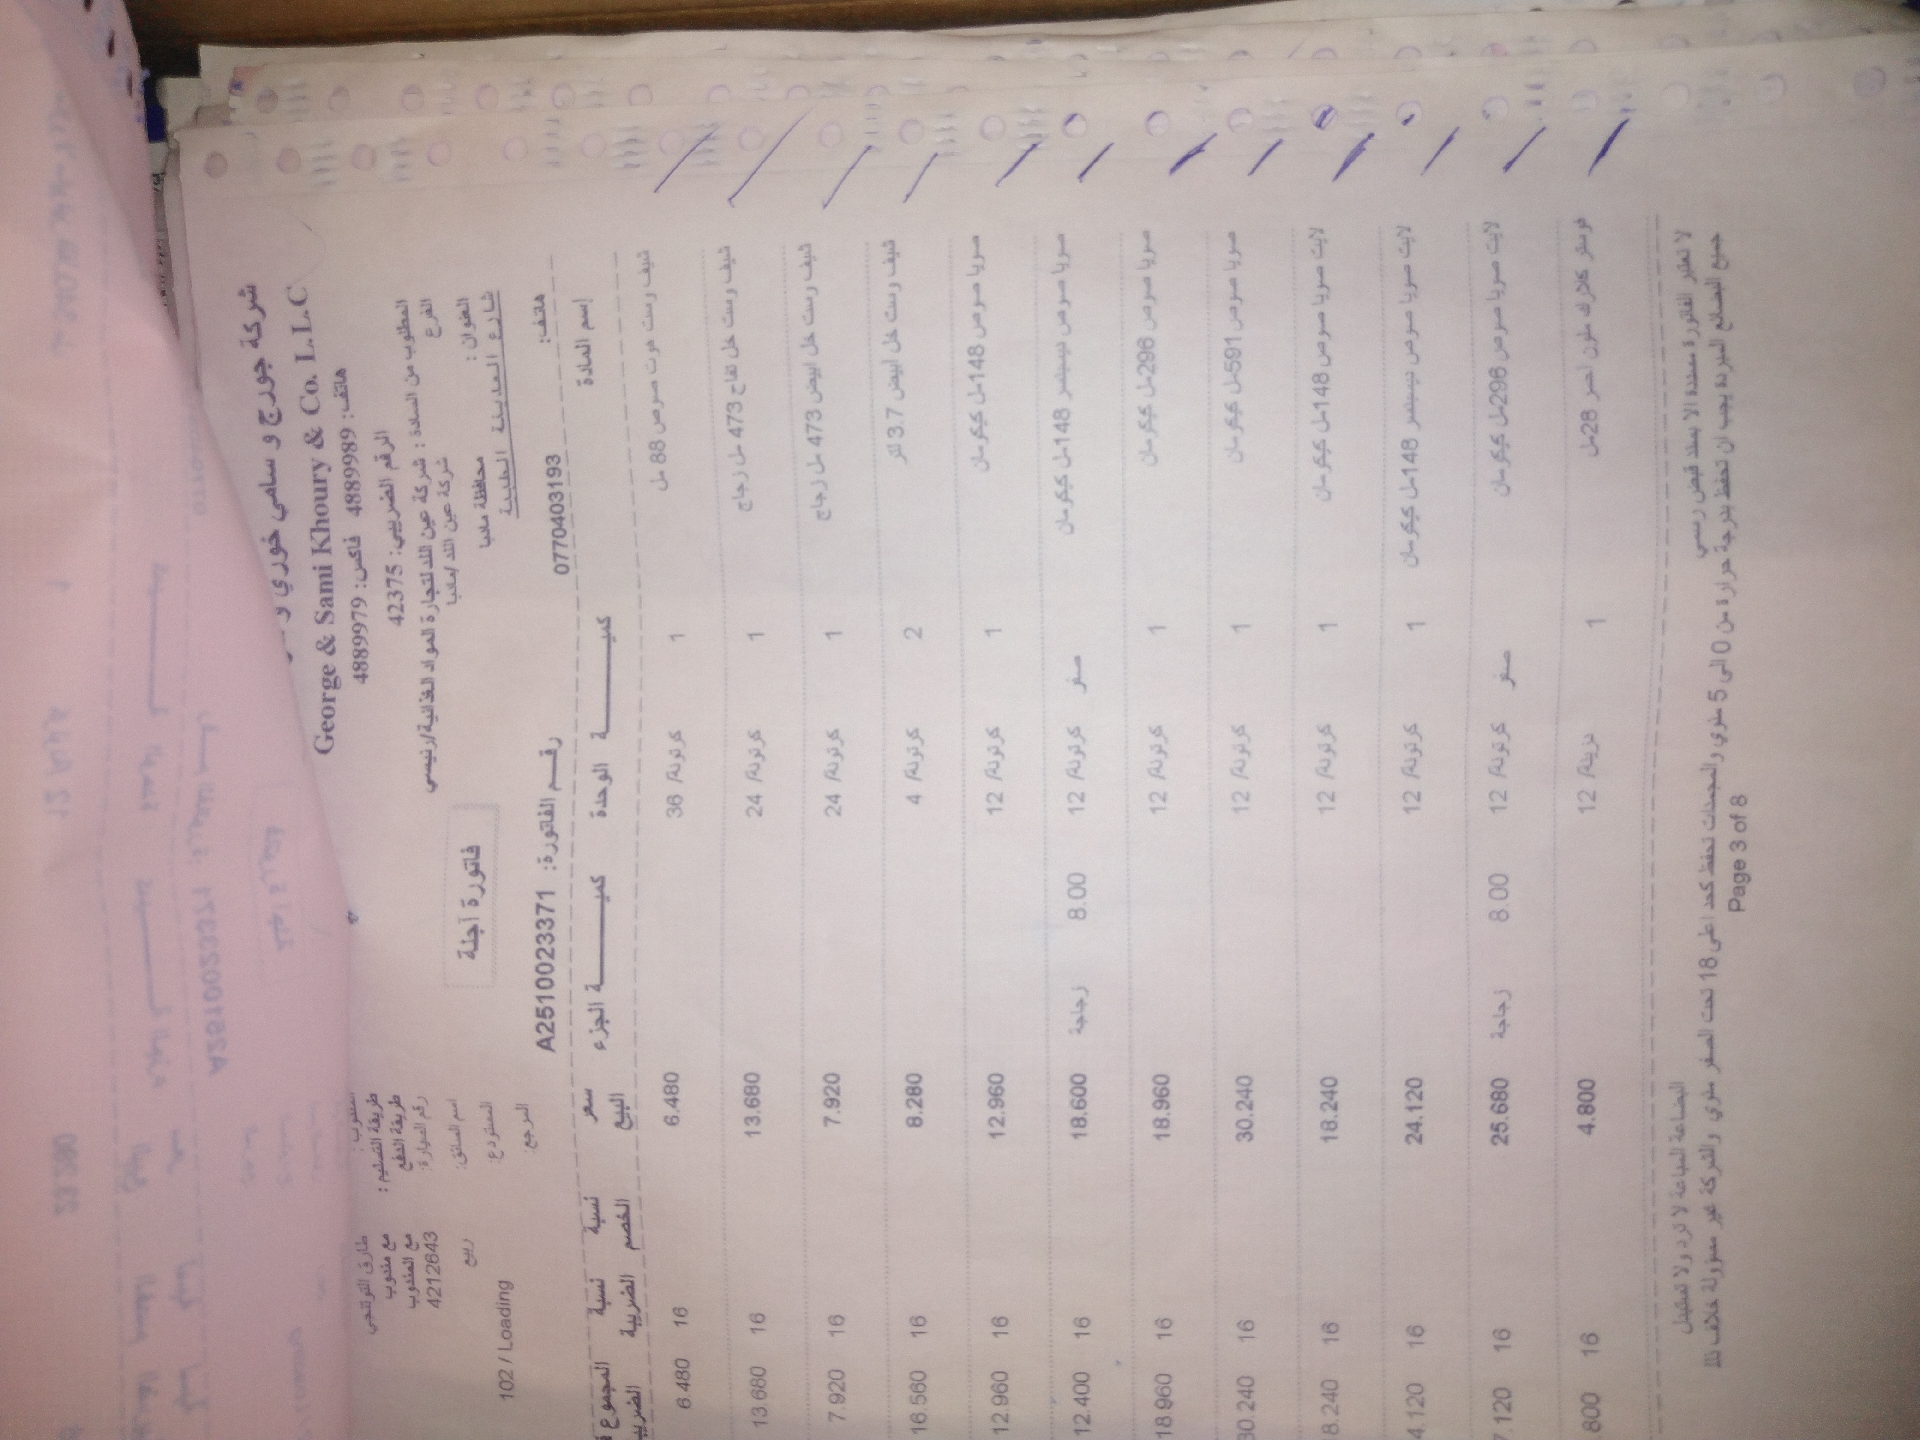 شركة جورج و سامي خوري و
George & Sami Khoury & Co. L.L.C
هاتف: 4889989 فاكس: 4889979
الرقم الضريبي: 42375
المطلوب من السادة : شركة عين اللد لتجارة المواد الغذائية/رئيسي
الفرع شركة عين اللد /مادبا
العنوان : محافظة مادبا
شارع المدينة الطبية
هاتف: 0770403193
فاتورة آجلة
رقم الفاتورة: A2510023371
طارق التوتنجي
طريقة التسليم : مع مندوب
طريقة الدفع مع المندوب
رقم السيارة: 4212643
اسم السائق: ربيع
المستودع: 102 / Loading
المرجع:
إسم المادة كميـــة الوحدة كميـــة الجزء سعر البيع نسبة الخصم نسبة الضريبة المجموع
شيف رست هوت صوص 88 مل 1 كرتونة/ 36 6.480 16 6.480
شيف رست خل تفاح 473 مل زجاج 1 كرتونة/ 24 13.680 16 13.680
شيف رست خل ابيض 473 مل زجاج 1 كرتونة/ 24 7.920 16 7.920
شيف رست خل ابيض 3.7 لتر 2 كرتونة/ 4 8.280 16 16.560
صويا صوص 148مل كيكومان 1 كرتونة/ 12 12.960 16 12.960
صويا صوص ديسبنسر 148مل كيكومان صفر كرتونة/ 12 8.00 زجاجة 18.600 16 12.400
صويا صوص 296مل كيكومان 1 كرتونة/ 12 18.960 16 18.960
صويا صوص 591مل كيكومان 1 كرتونة/ 12 30.240 16 30.240
لايت صويا صوص 148مل كيكومان 1 كرتونة/ 12 18.240 16 8.240
لايت صويا صوص ديسبنسر 148مل كيكومان 1 كرتونة/ 12 24.120 16 4.120
لايت صويا صوص 296مل كيكومان صفر كرتونة/ 12 8.00 زجاجة 25.680 16 7.120
فوستر كلارك ملون احمر 28مل 1 دزينة/ 12 4.800 16 800
لا تعتبر الفاتورة مسددة الا بسند قبض رسمي البضاعة المباعة لا ترد ولا تستبدل
جميع البضائع المبردة يجب ان تحفظ بدرجة حرارة من 0 الى 5 مئوي والمجمدات تحفظ كحد اعلى 18 تحت الصفر مئوي والشركة غير مسؤولة خلاف ذلك
Page 3 of 8